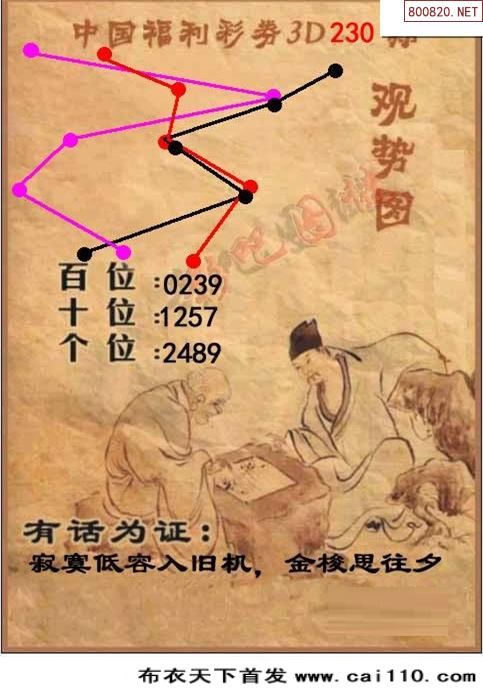 800820.NET
中国福利彩券3D 230
观势图
百 位 :0239
十 位 :1257
个 位 :2489
有话为证：
寂寞低容入旧机，金梭思往夕
布衣天下首发 www.cai110.com